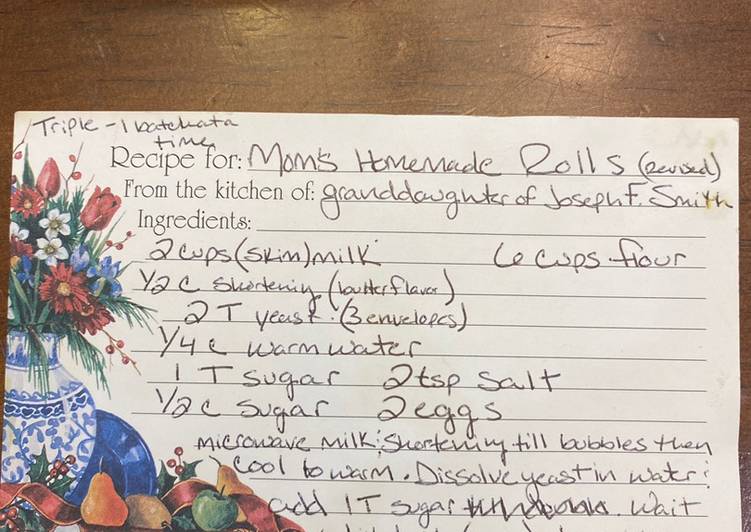 Triple - 1 batch at a
time
Recipe for: Mom's Homemade Rolls (Revised)
From the kitchen of: granddaughter of Joseph F. Smith
Ingredients:
2 cups (skim) milk 6 cups flour
1/2 c shortening (butter flavor)
2 T yeast (3 envelopes)
1/4 c warm water
1 T sugar 2 tsp salt
1/2 c sugar 2 eggs
microwave milk & shortening till bubbles then
cool to warm. Dissolve yeast in water &
add 1 T sugar. Wait